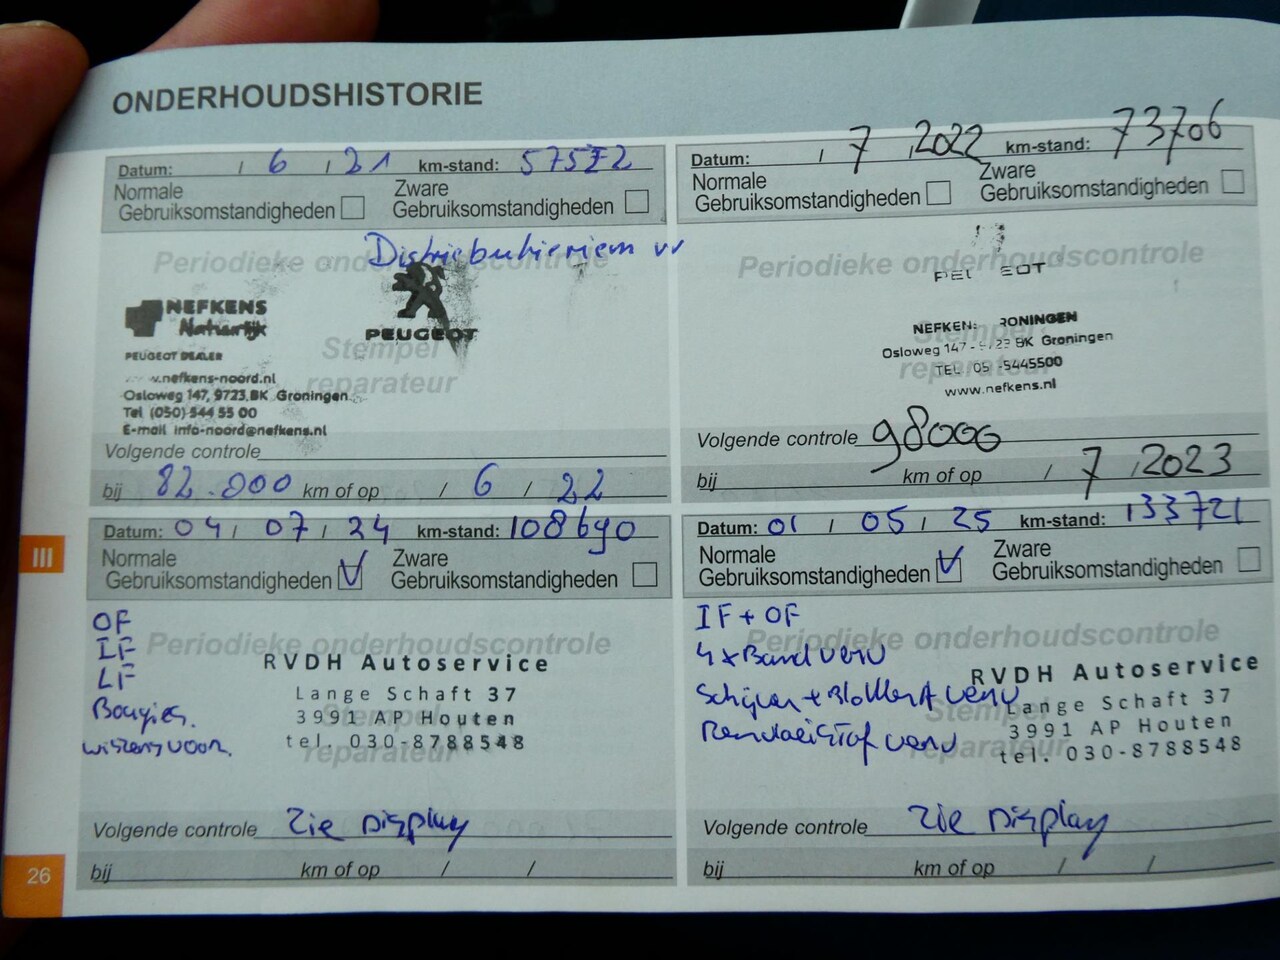 ONDERHOUDSHISTORIE
Datum: / 6 / 21 km-stand: 57572
Normale Gebruiksomstandigheden Zware Gebruiksomstandigheden
Distriebutieriem vv
Periodieke onderhoudscontrole
NEFKENS
Natuurlijk
PEUGEOT
PEUGEOT DEALER
Stempel
reparateur
.nefkens-noord.nl
Osloweg 147, 9723 BK Groningen
Tel (050) 544 55 00
E-mail info-noord@nefkens.nl
Volgende controle
bij 82.000 km of op / 6 / 22
Datum: / 7 / 2022 km-stand: 73706
Normale Gebruiksomstandigheden Zware Gebruiksomstandigheden
Periodieke onderhoudscontrole
PEU EOT
Stempel
reparateur
NEFKEN RONINGEN
Osloweg 147 - 23 BK Groningen
TEL 05 -5445500
www.nefkens.nl
Volgende controle 98000
bij km of op / 7 / 2023
III
Datum: 04 / 07 / 24 km-stand: 108690
Normale Gebruiksomstandigheden V Zware Gebruiksomstandigheden
OF
IF
LF
Bougies.
wissers voor.
Periodieke onderhoudscontrole
RVDH Autoservice
Lange Schaft 37
3991 AP Houten
tel. 030-8788548
Stempel
reparateur
Volgende controle Zie Display
bij km of op / /
Datum: 01 / 05 / 25 km-stand: 133721
Normale Gebruiksomstandigheden V Zware Gebruiksomstandigheden
IF + OF
4x Band verv
Schijven + Blokken A verv
Remvloeistof verv
Periodieke onderhoudscontrole
RVDH Autoservice
Lange Schaft 37
3991 AP Houten
tel. 030-8788548
Stempel
reparateur
Volgende controle Zie Display
bij km of op / /
26